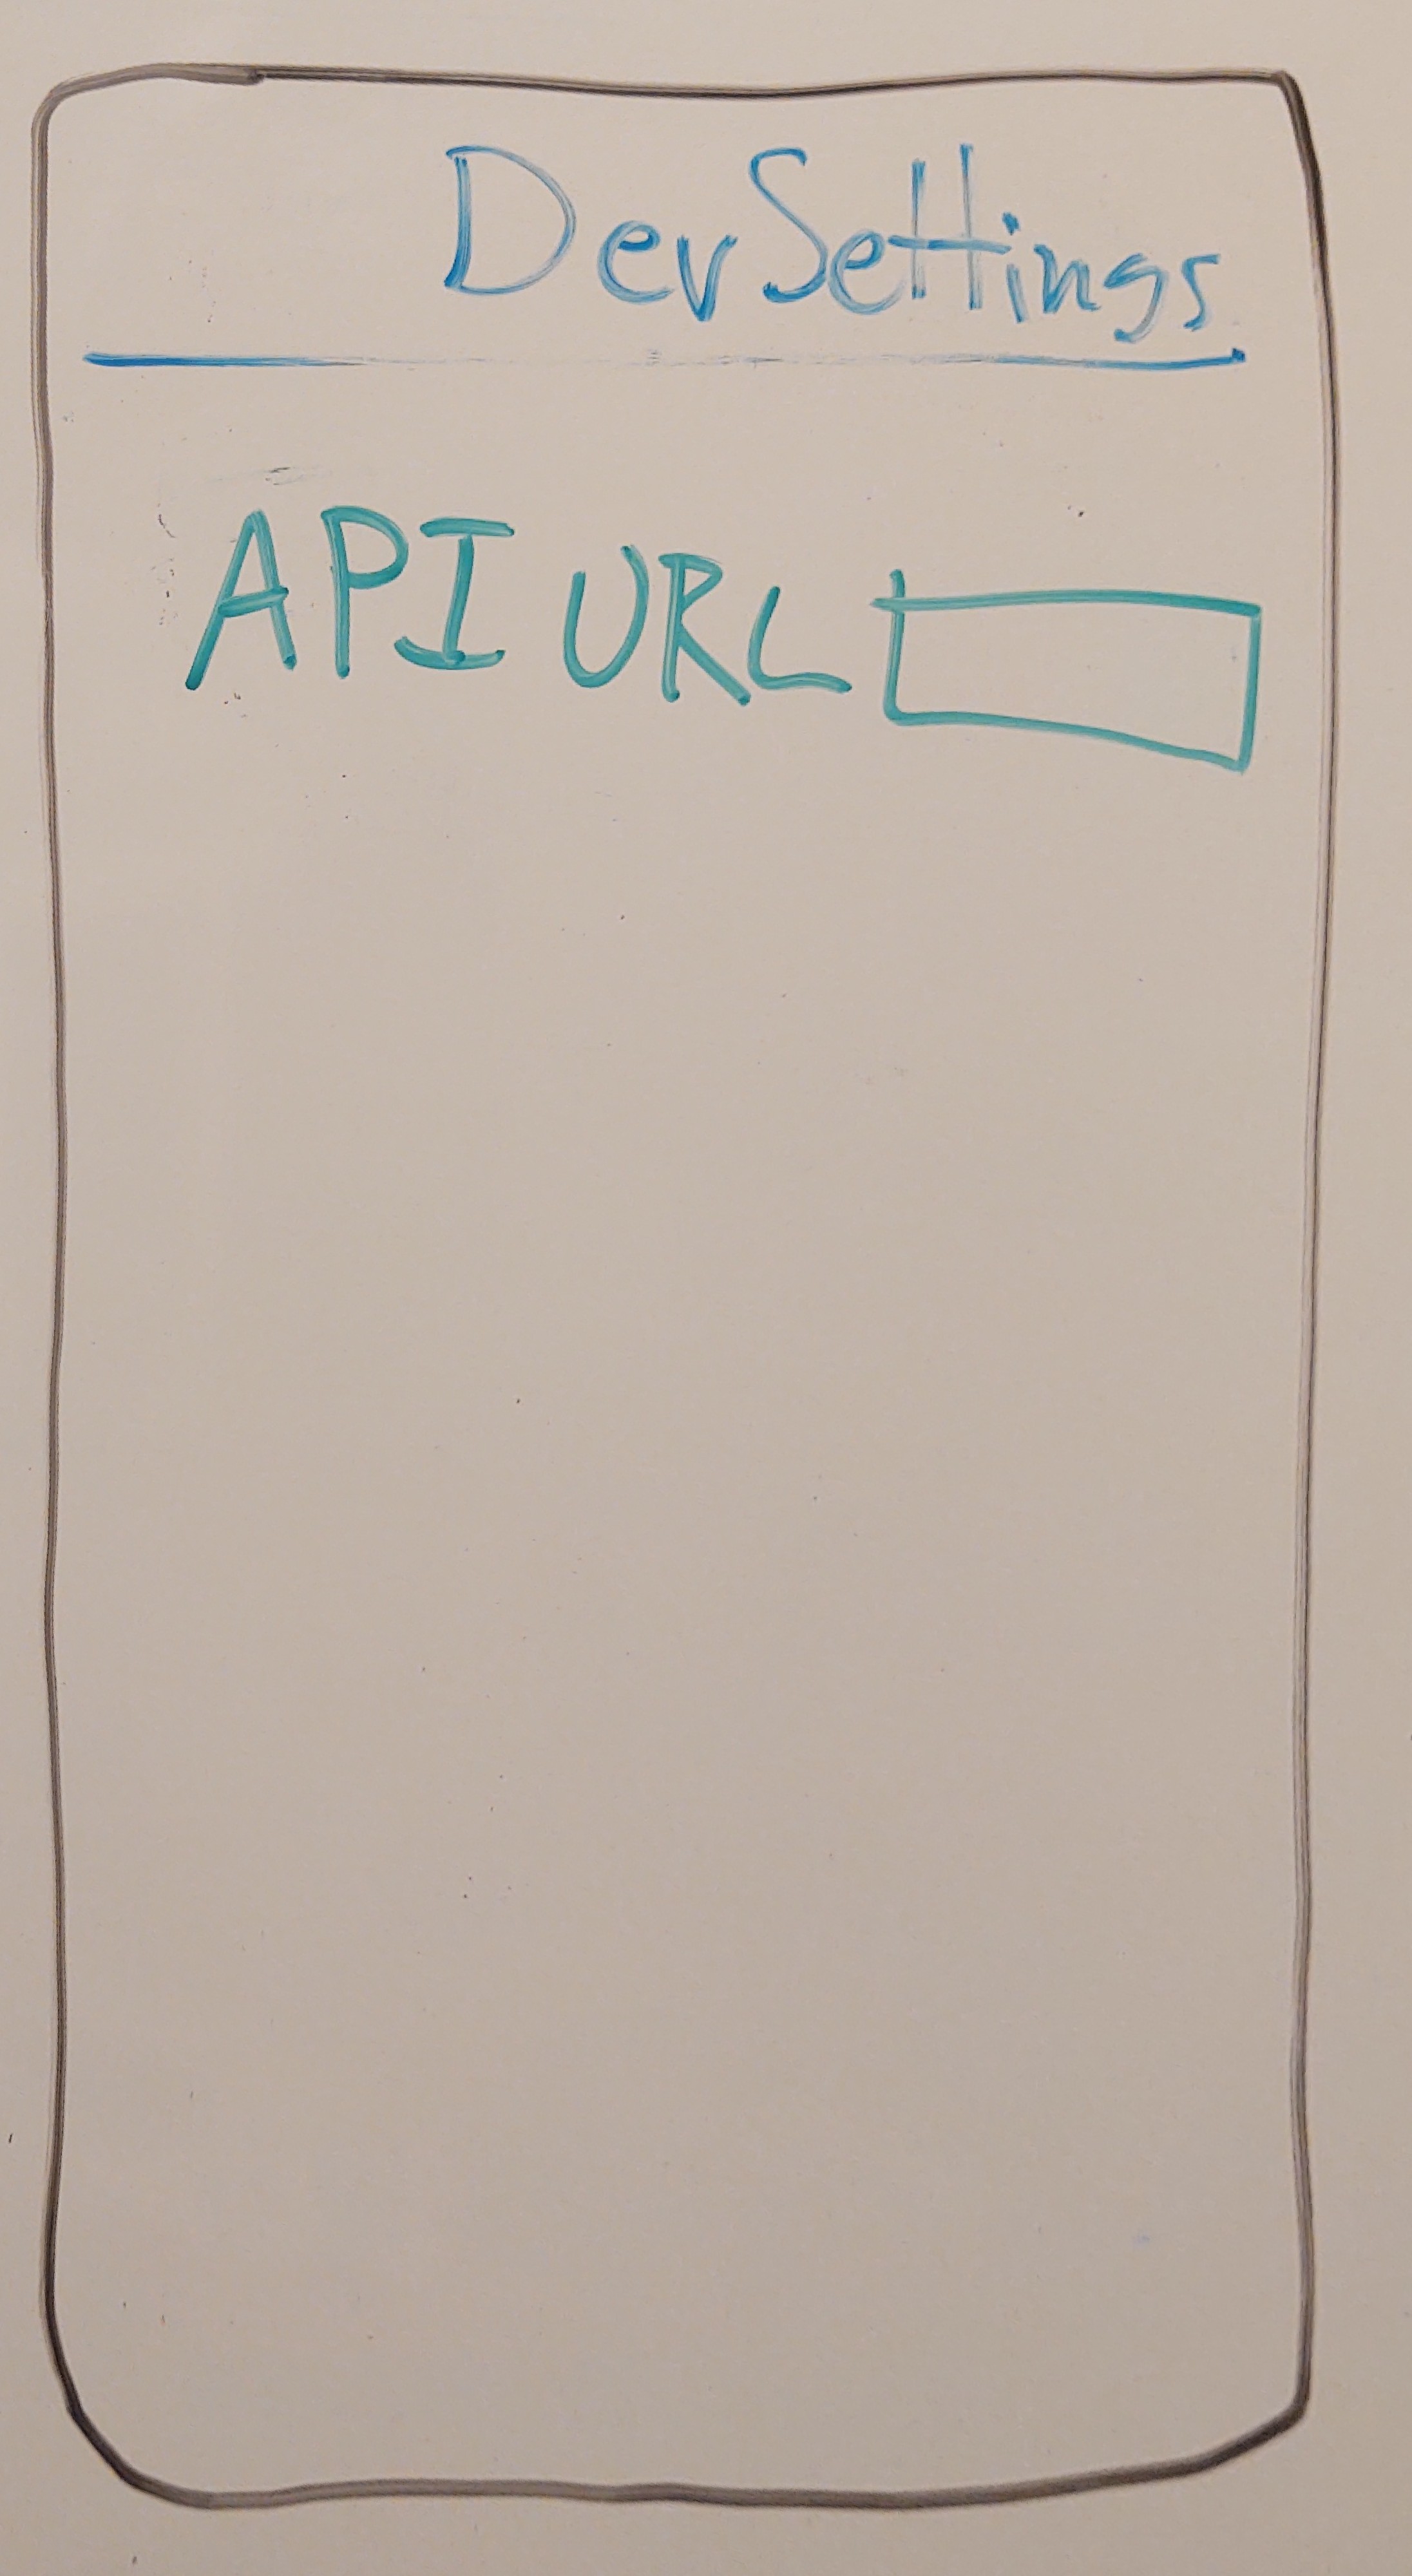 Dev Settings
API URL